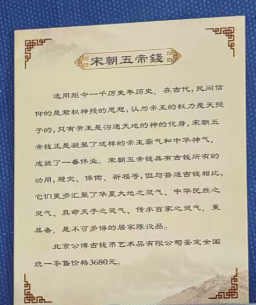 宋朝五帝錢
选用距今一千历史年历史，在古代，民间信
仰的是君权神授的思想，认为帝王的权力是天授
予的，只有帝王是沟通天地的神的化身，宋朝五
帝钱正是凝聚了这样的帝王霸气和中华神气，
成就了一番伟业。宋朝五帝钱具有古钱所有的
功用，避灾、保佑、祈福等，但与普通古钱相比，
它们更多汇聚了华夏大地之灵气、中华民族之
灵气、真命天子之灵气、传承百家之灵气，更
具备，是不可多得的居家陈设品。
北京公博古钱币艺术品有限公司鉴定全国
统一零售价格3680元。